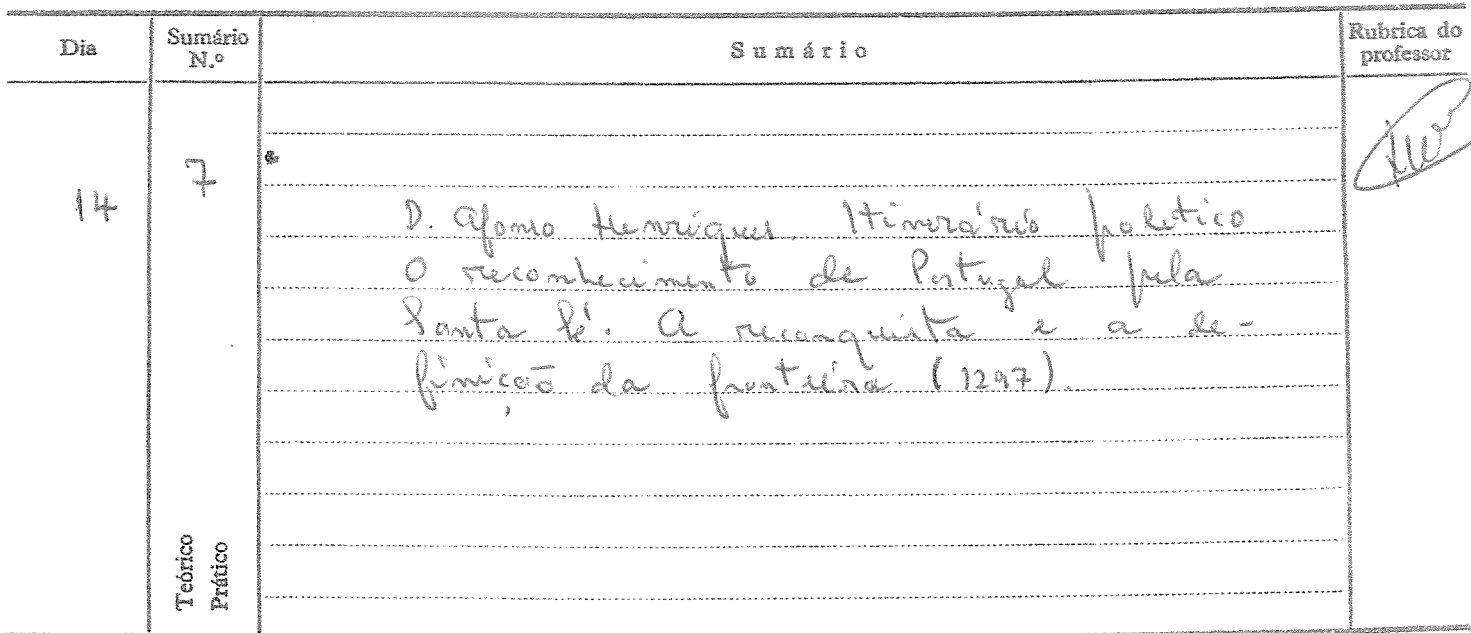 Dia
Sumário
N.º
Sumário
Rubrica do
professor
14
7
D. Afonso Henriques. Itinerário político
O reconhecimento de Portugal pela
Santa Sé. A reconquista e a de-
finição da fronteira (1297).
Teórico
Prático